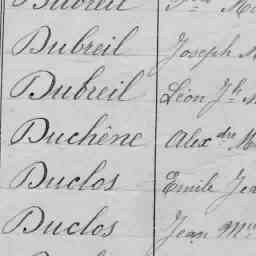 Dubreil Joseph
Dubreil Léon Jh
Duchêne Alexdre
Duclos Emile
Duclos Jean Mie